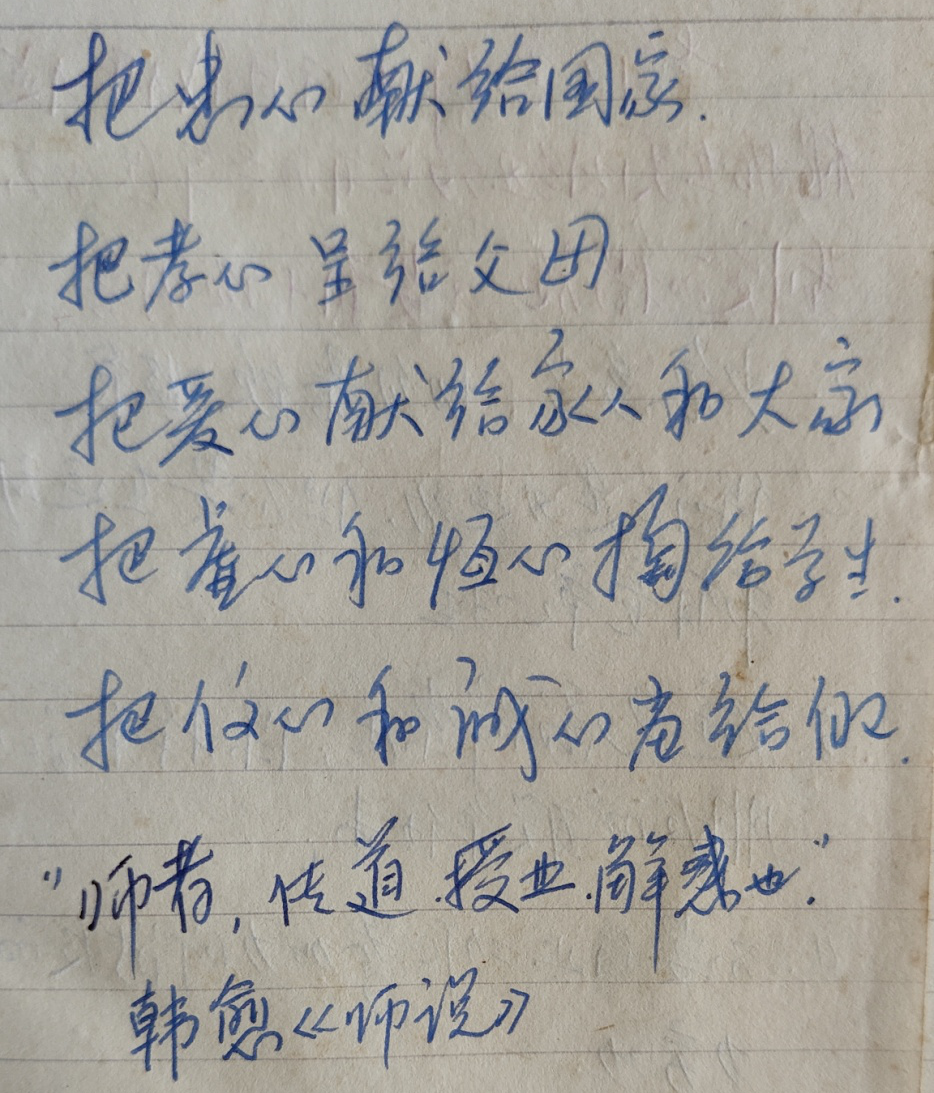 把忠心献给国家.
把孝心呈给父母
把爱心献给家人和大家
把童心和恒心掏给学生.
把信心和诚心留给自己.
"师者,传道.授业.解惑也".
韩愈《师说》